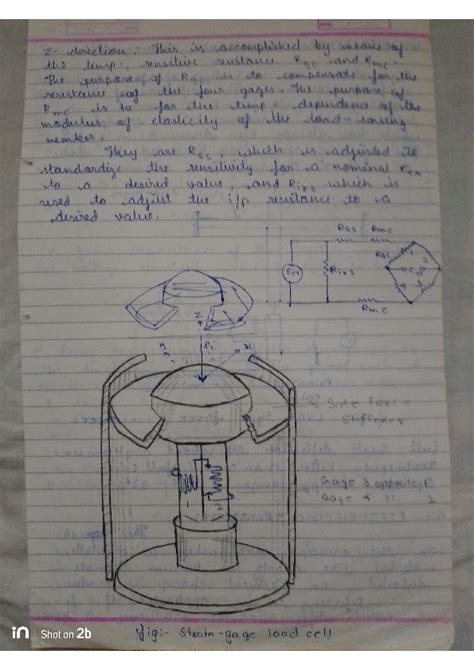 z- direction. This is accomplished by means of
the temp., sensitive resistance Rgc and Rmc.
The purpose of Rgc is to compensate for the
resistance of the four gages. The purpose of
Rmc is to for the temp. dependence of the
modulus of elasticity of the load-sensing
member.
They are Rss, which is adjusted to
standardize the sensitivity for a nominal Eex
to a desired value, and Rirs which is
used to adjust the i/p resistance to a
desired value.
Rss Rmc
Rgc
Eex
Rirs
Rmc
z
Fi
x
Side Force
Stiffener
Gage 3 opposite
Gage 4 " 2
Fig:- Strain-gage load cell
Shot on 2b